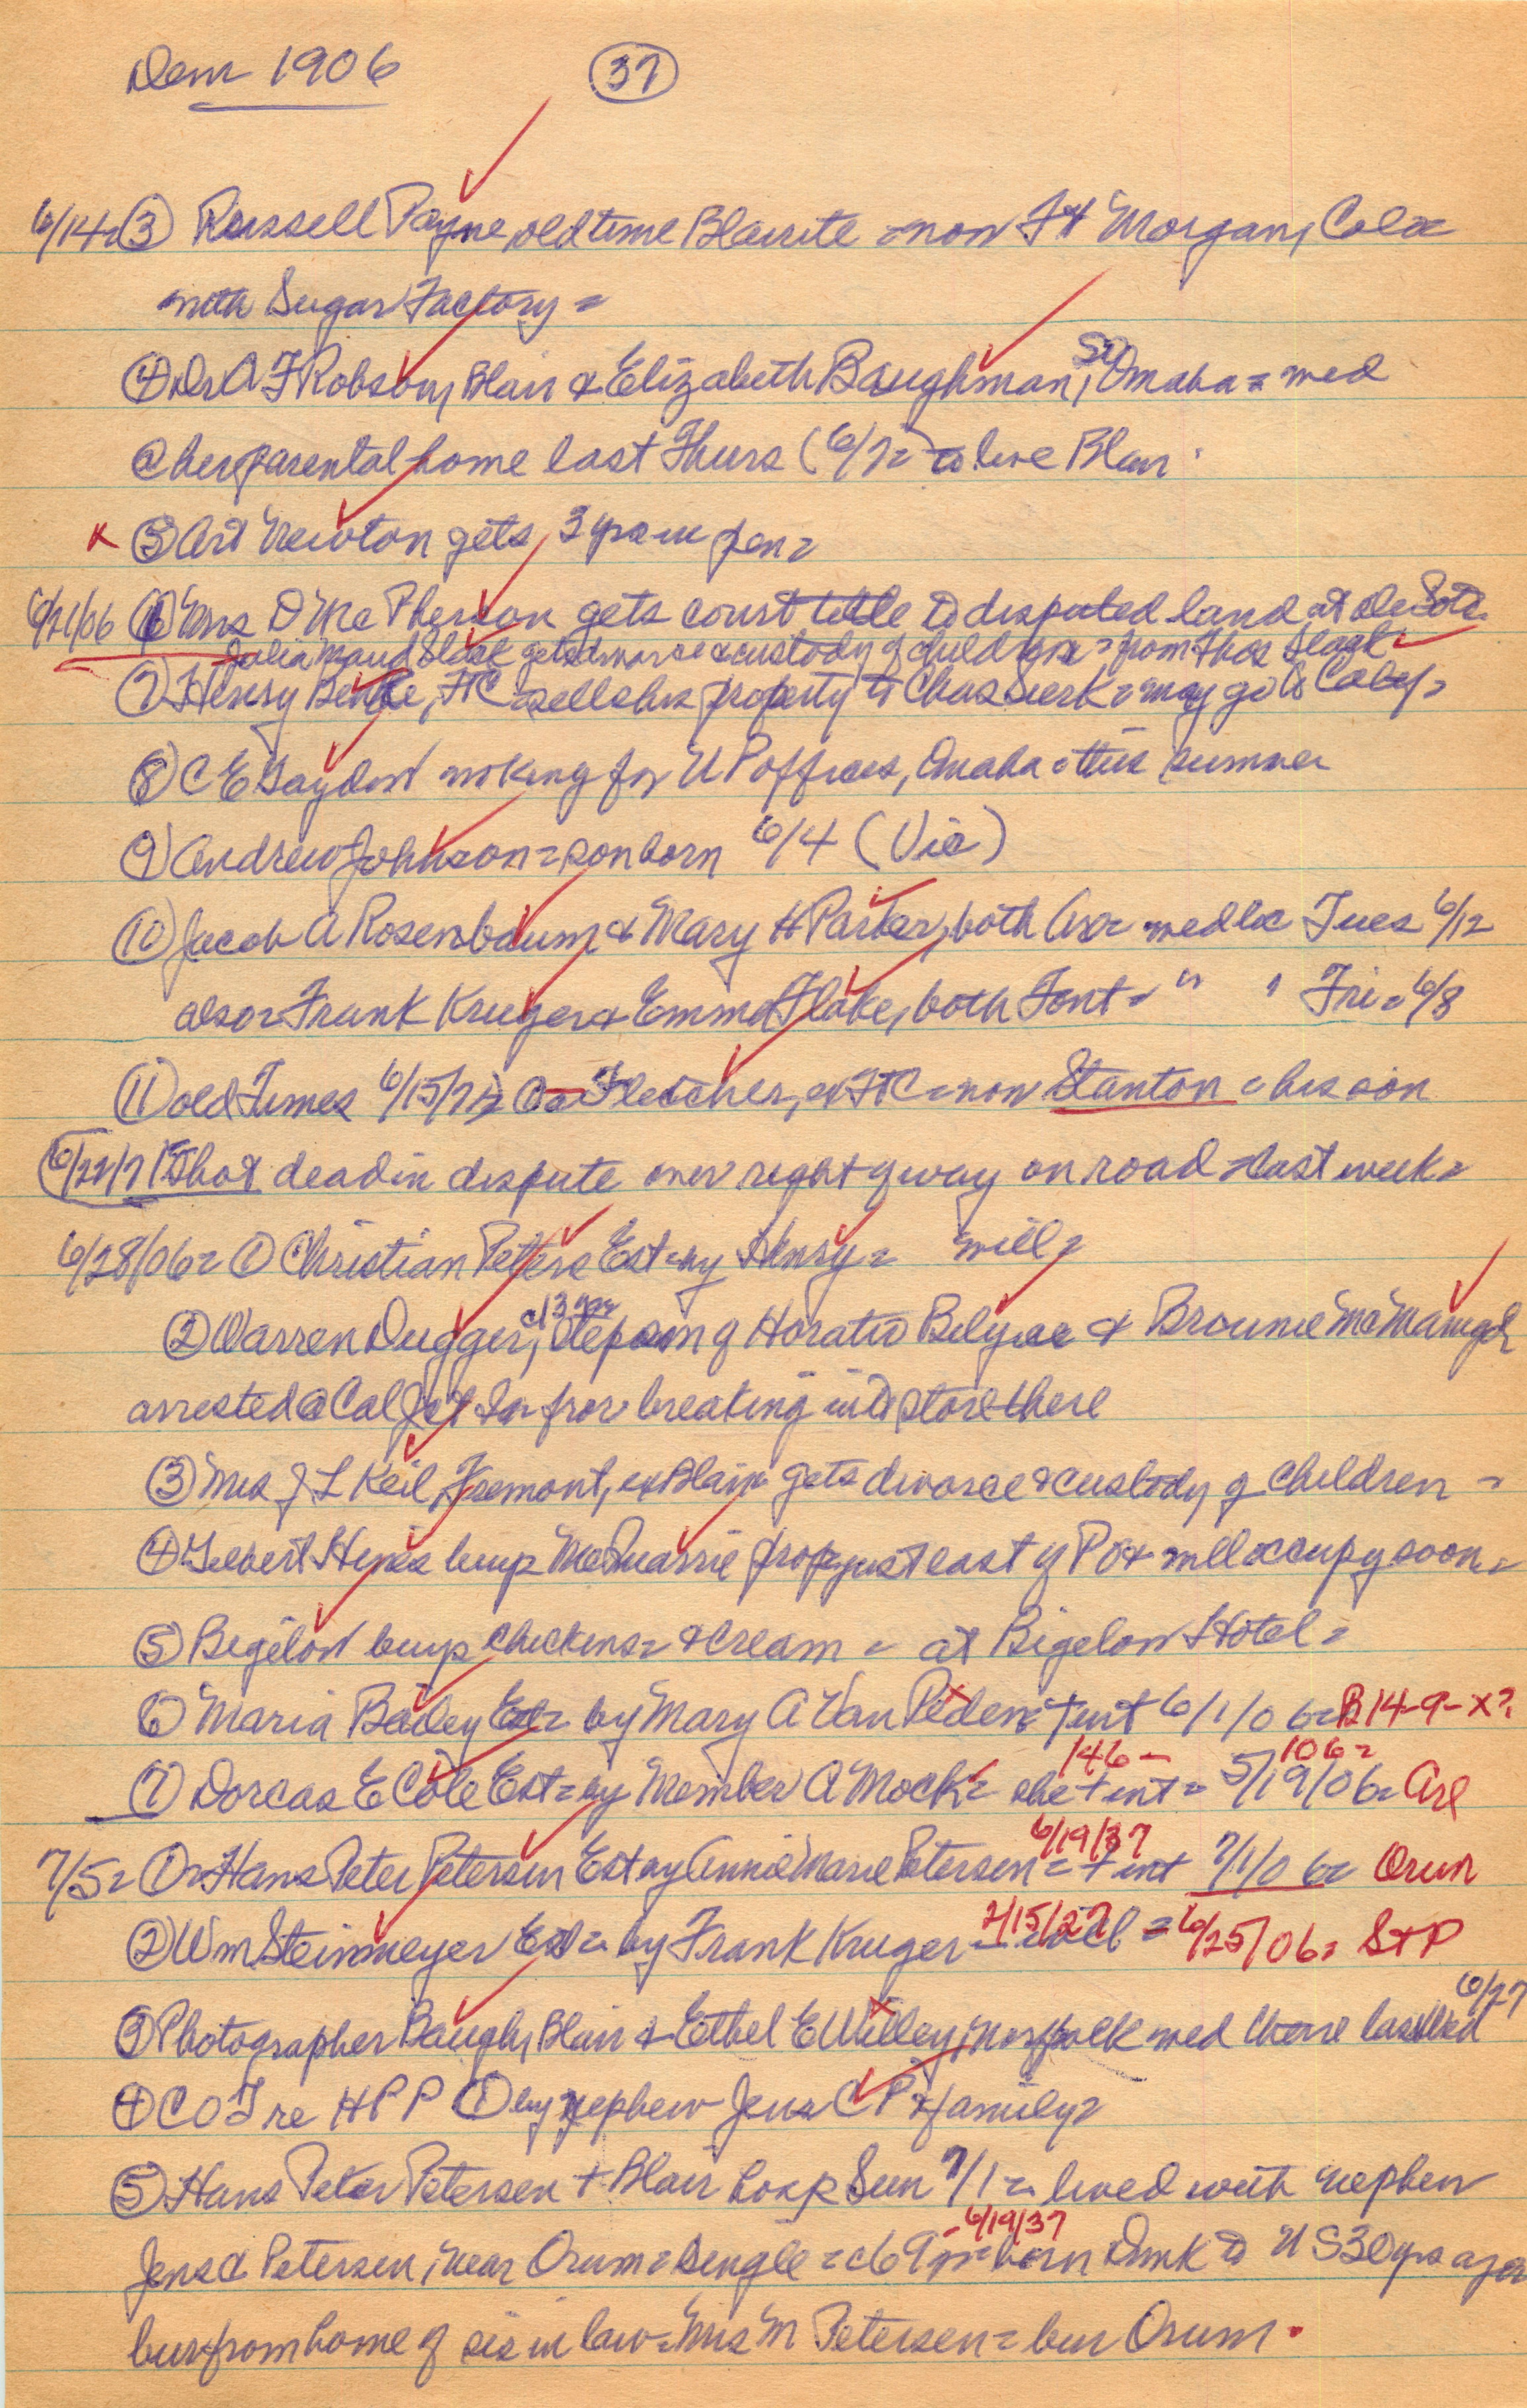 Dem 1906 (37)
6/14= (3) Russell Payne, oldtime Blairite = now Ft Morgan, Colo =
with Sugar Factory =
(4) Dr A F Robson, Blair & Elizabeth Baughman, So Omaha = med
@ her parental home last Thurs (6/7= to live Blair
x (5) Art Newton gets 3 yrs in pen=
6/21/06 (6) Mrs D McPherson gets court title to disputed land at DeSoto
Julia Maud Slack gets divorce & custody of children = from Thos Slack
(7) Henry, FtC = sells his property to Chas = may go to
(8) C E Gaydou working for U P offices, Omaha = this summer
(9) Andrew Johnson = son born 6/4 (Vic)
(10) Jacob A Rosenbaum & Mary H Parker, both = med Tues 6/12
also = Frank Kruger & Emma Flake, both Font = " " Fri = 6/8
(11) Old Times 6/15/71 Fletcher, ex FtC = now Stanton = his son
6/22/71 Shot dead in dispute over right of way on road = last week =
6/28/06= (1) Christian Peters Est = by Henry = will =
(2) Warren Dugger, c13 yrs, stepson of Horatio & Brownie
arrested @ Cal Jct Ia for breaking into store there
(3) Mrs J L Keil, Fremont, ex Blair gets divorce & custody of children =
(4) Gilbert Hines buys McQuarrie prop just east of PO & will occupy soon =
(5) Bigelow buys chickens = & cream = at Bigelow Hotel =
(6) Maria Bailey Est = by Mary A Van = + int 6/1/06= B 14-9-x?
146 - 106=
(7) Dorcas E Cole Est = by Member A Mock = she + int = 5/19/06= Arl
6/19/37
7/5= (1) = Hans Peter Petersen Est by Annie Marie Petersen = + int 7/1/06= Orum
2/15/27
(2) Wm Steinmeyer Est = by Frank Kruger = will = 6/25/06= S+P
6/27
(3) Photographer Baugh, Blair & Ethel E Willey, Norfolk med there last Wed
(4) COT re HPP (1) by nephew Jens C P & family =
(5) Hans Peter Petersen + Blair hosp Sun 7/1 = lived with nephew
6/19/37
Jens C Petersen, near Orum = single = c69 yrs = born Dmk to U S 30 yrs ago =
bur from home of sis in law = Mrs M Petersen = bur Orum.